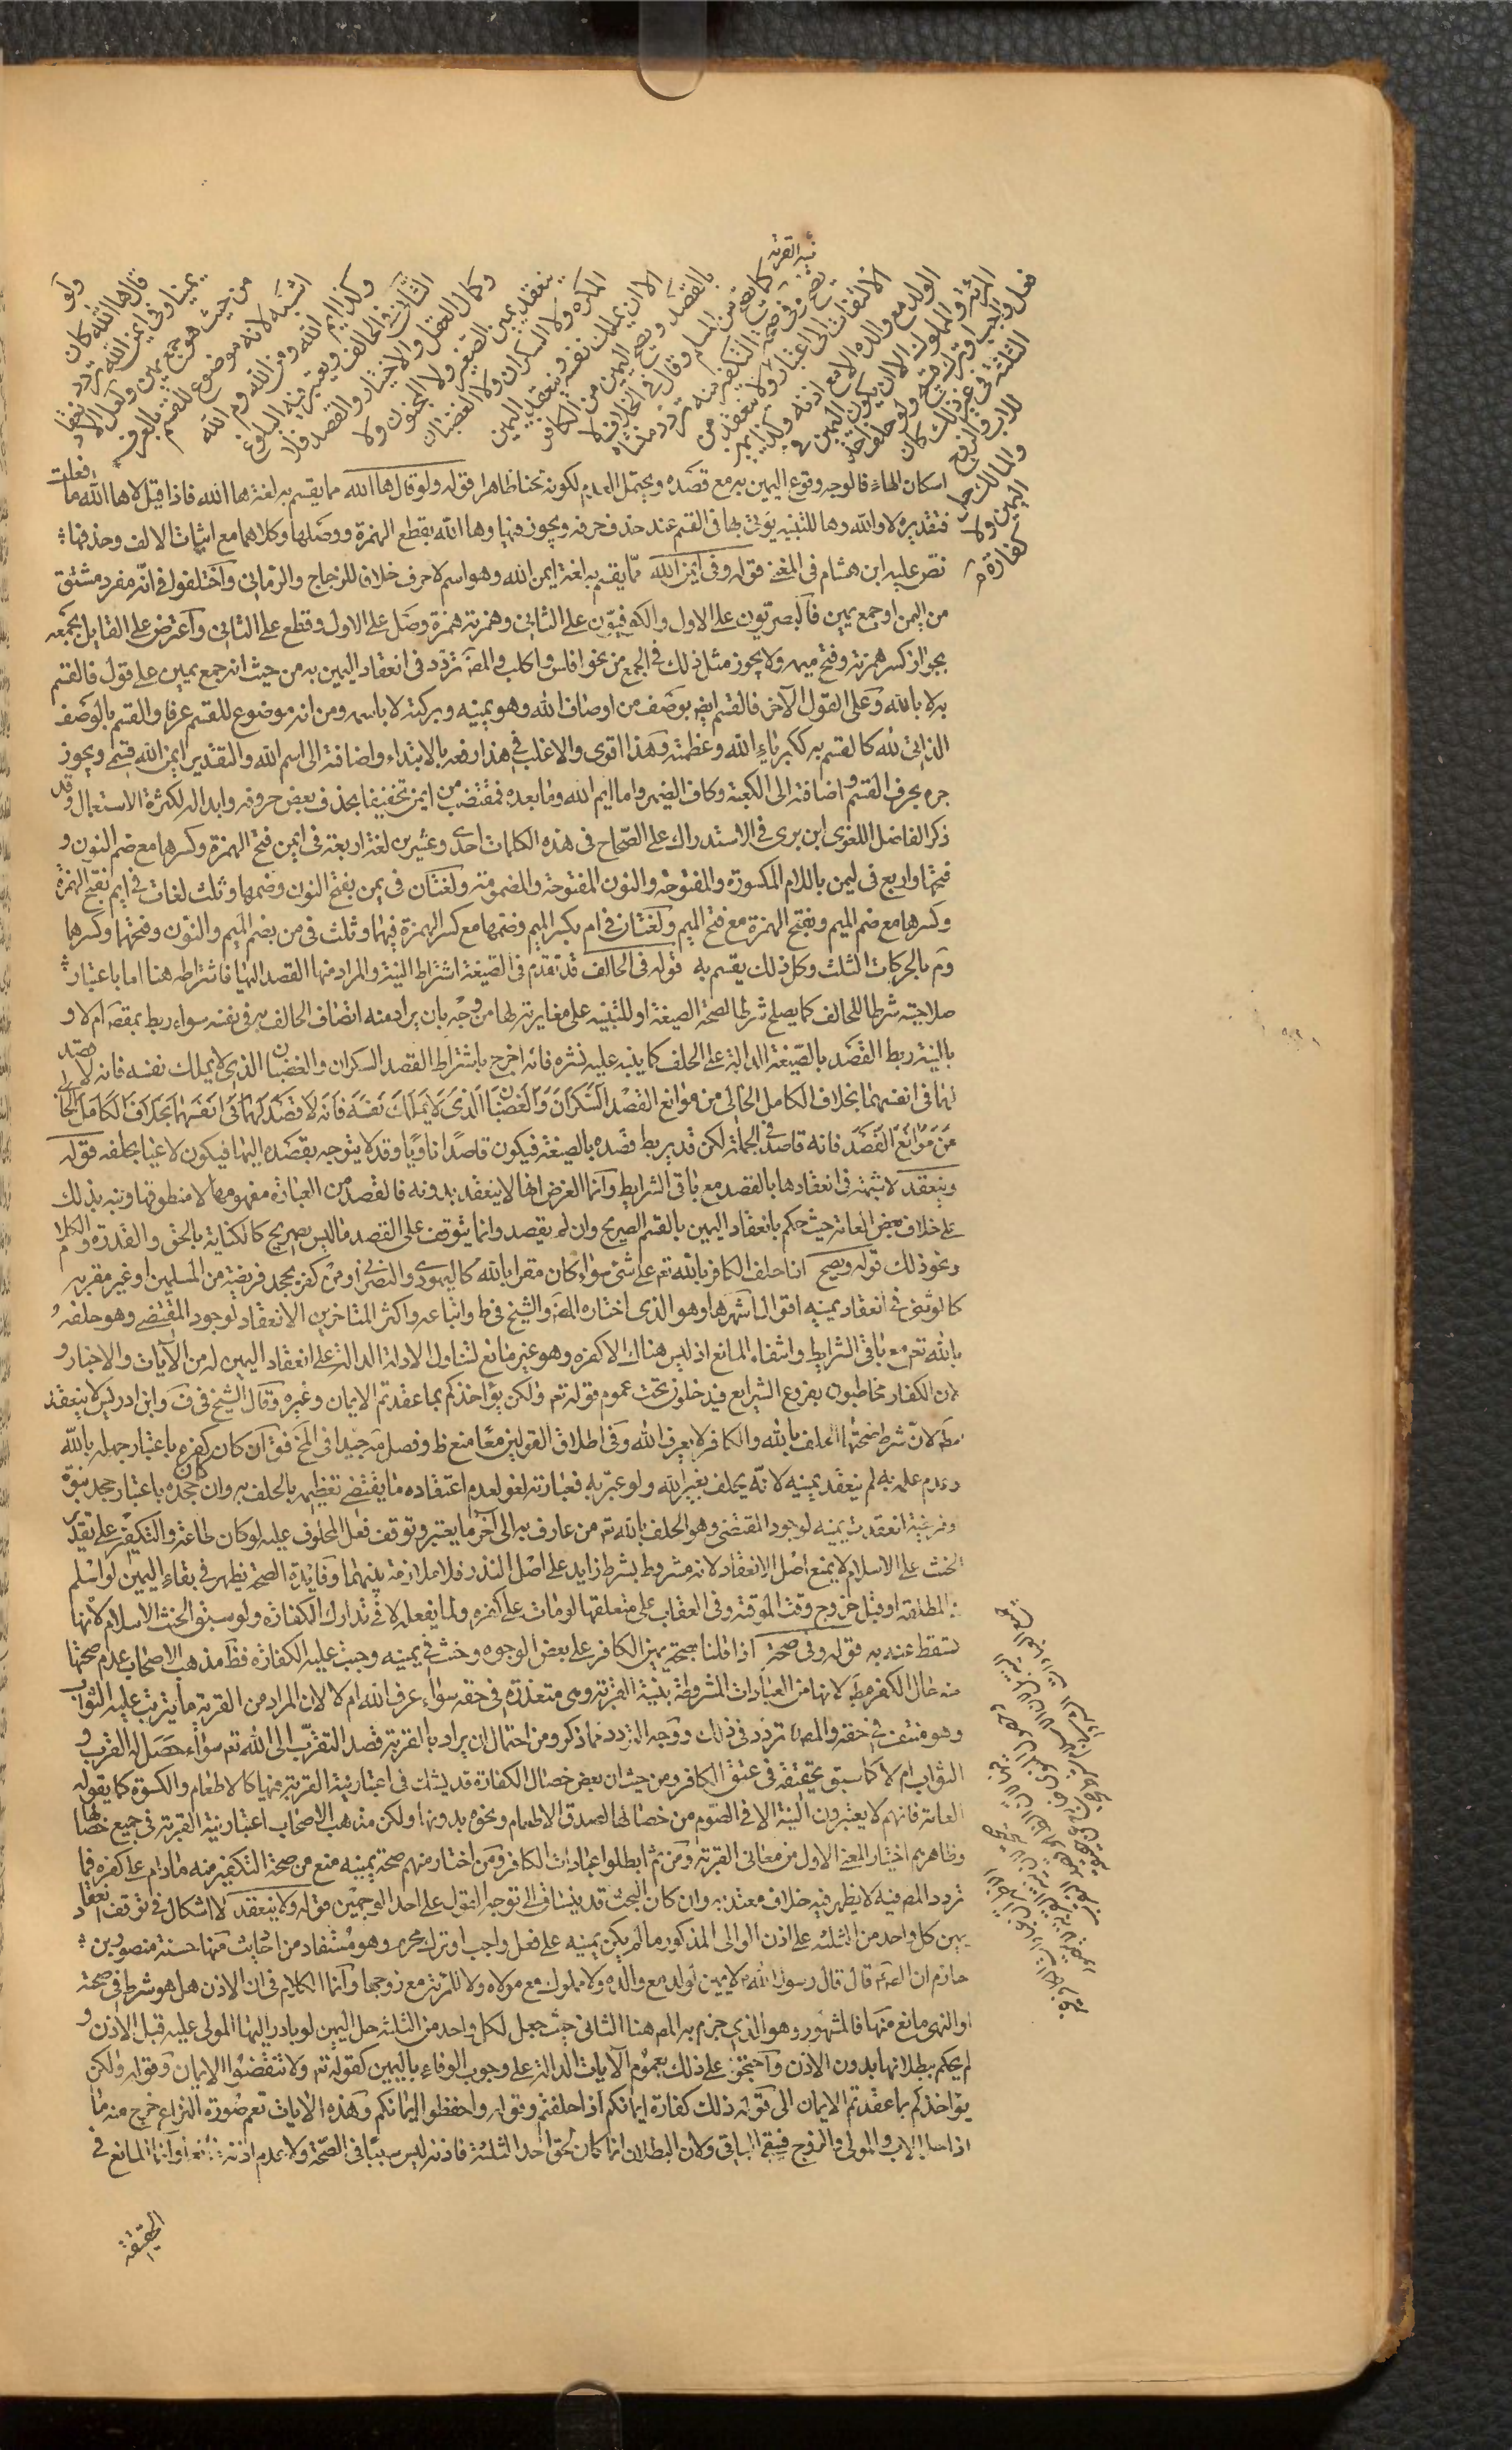 ولو
قال ها الله كان
يمينا وفي ايمن الله تردد
من حيث هو جمع يمين ولعل الانعقاد
اشبه لانه موضوع للقسم بالعرف
وكذا ايم الله ومن الله وم الله
الثاني في الحالف ويعتبر فيه البلوغ
وكمال العقل والاختيار والقصد فلا
ينعقد يمين الصغير ولا المجنون ولا
المكره ولا السكران ولا الغضبان
الا ان يملك نفسه وينعقد اليمين
بالقصد ويصح اليمين من الكافر
كما يصح من المسلم وقال في الخلاف لا
يصح وفي صحة التكفير منه تردد منشاه
الالتفات الى اعتبار نية القربة ولا ينعقد من
الولد مع والده الا مع اذنه وكذا يمين
المراة والمملوك الا ان يكون اليمين في
فعل واجب او ترك قبيح ولو حلف احد
الثلثة في غير ذلك كان
للاب والزوج
والمالك حل
اليمين ولا
كفارة
اسكان الهاء فالوجه وقوع اليمين به مع قصده ويحتمل العدم لكونه لحنا ظاهرا قوله ولو قال ها الله مما يقسم به لغة ها الله فاذا قيل لا ها الله ما فعلت
فتقديره لا والله وها للتنبيه يؤتى بها في القسم عند حذف حرفه ويجوز فيها وها الله بقطع الهمزة ووصلها وكلاهما مع اثبات الالف وحذفها
نص عليه ابن هشام في المغني قوله وفي ايمن الله مما يقسم به لغة ايمن الله وهو اسم لا حرف خلاف للزجاج والرماني واختلفوا في انه مفرد مشتق
من اليمن او جمع يمين فالبصريون على الاول والكوفيون على الثاني وهمزته همزة وصل على الاول وقطع على الثاني واعترض على القايل بجمعه
بجواز كسر همزته وفتح ميمه ولا يجوز مثل ذلك في الجمع من نحو افلس واكلب والمص تردد في انعقاد اليمين به من حيث انه جمع يمين على قول فالقسم
به لا بالله وعلى القول الآخر فالقسم ايضا بوصف من اوصاف الله وهو يمينه وبركته لا باسمه ومن انه موضوع للقسم عرفا والقسم بالوصف
الذاتي لله كالقسم به ككبرياء الله وعظمته وهذا اقوى والاغلب في هذا رفعه بالابتداء واضافته الى اسم الله والتقدير ايمن الله قسمي ويجوز
جره بحرف القسم واضافته الى الكعبة وكاف الضمير واما ايم الله وما بعده فمقتضب من ايمن تخفيفا بحذف بعض حروفه وابداله لكثرة الاستعمال وقد
ذكر الفاضل اللغوي ابن بري في الاستدراك على الصحاح في هذه الكلمات احدى وعشرين لغة اربعة في ايمن فتح الهمزة وكسرها مع ضم النون و
فتحها واربع في ليمن باللام المكسورة والمفتوحة والنون المفتوحة والمضمومة ولغتان في يمن بفتح النون وضمها وثلث لغات في ايم بفتح الهمزة
وكسرها مع ضم الميم وبفتح الهمزة مع فتح الميم ولغتان في ام بكسر الميم وضمها مع كسر الهمزة فيهما وثلث في من بضم الميم والنون وفتحهما وكسرهما
وم بالحركات الثلث وكل ذلك يقسم به قوله في الحالف قد تقدم في الصيغة اشتراط النية والمراد منها القصد اليها فاشتراطه هنا اما باعتبار
صلاحيته شرطا للحالف كما يصلح شرطا لصحة الصيغة او للتنبيه على مغايرته لها من وجه بان يراد منه اتصاف الحالف به في نفسه سواء ربط بمقصه ام لا و
بالنية ربط القصد بالصيغة الدالة على الحلف كما ينبه عليه نشره فانه اخرج باشتراط القصد السكران والغضبان الذي لا يملك نفسه فانه لا قصد
لهما في انفسهما بخلاف الكامل الخالي من موانع القصد السكران والغضبان الذي لا يملك نفسه فانه لا قصد لهما في انفسهما بخلاف الكامل الخالي
من موانع القصد فانه قاصد في الجملة لكن قد يربط قصده بالصيغة فيكون قاصدا ناويا وقد لا يتوجه بقصده اليها فيكون لاغيا بحلفه قوله
وينعقد لا شبهة في انعقادها بالقصد مع باقي الشرايط وانما الغرض انها لا ينعقد بدونه فالقصد من العبارة مفهومها لا منطوقها ونبه بذلك
على خلاف بعض العامة حيث حكم بانعقاد اليمين بالقسم الصريح وان لم يقصد وانما يتوقف على القصد ما ليس بصريح كالكناية بالحق والقدرة والكلام
ونحو ذلك قوله ويصح اذا حلف الكافر بالله تعم على شئ سواء كان مقرا بالله كاليهودي والنصراني او من كفره بجحد فريضة من المسلمين او غير مقر به
كالوثني في انعقاد يمينه اقوال اشهرها وهو الذي اختاره المص والشيخ في ط واتباعه واكثر المتاخرين الانعقاد لوجود المقتضي وهو حلفه
بالله تعم مع باقي الشرايط وانتفاء المانع اذ ليس هناك الا كفره وهو غير مانع لتناول الادلة الدالة على انعقاد اليمين له من الآيات والاخبار و
لان الكفار مخاطبون بفروع الشرايع فيدخلون تحت عموم قوله تعم ولكن يؤاخذكم بما عقدتم الايمان وغيره وقال الشيخ في ف وابن ادريس لا ينعقد
مط لان شرط صحتها الحلف بالله والكافر لا يعرف الله وفي اطلاق القولين معا منع ظ وفصل مة جيدا في المخ فق ان كان كفره باعتبار جهله بالله
وعدم علمه به لم ينعقد يمينه لانه يحلف بغير الله ولو عبر به فعبارته لغو لعدم اعتقاده ما يقتضي تعظيمه بالحلف به وان كان جحده باعتبار جحد نبوة
وفريضة انعقدت يمينه لوجود المقتضى وهو الحلف بالله تعم من عارف به الى آخر ما يعتبر وتوقف فعل المحلوف عليه لو كان طاعة والتكفير على تقدير
الحنث على الاسلام لا يمنع اصل الانعقاد لانه مشروط بشرط زايد على اصل النذر فلا ملازمة بينهما وفايدة الصحة تظهر في بقاء اليمين لو اسلم
المطلقة او قبل خروج وقت الموقتة وفي العقاب على متعلقها لو مات على كفره ولما يفعله لا في تدارك الكفارة ولو سبق الحنث الاسلام لانها
تسقط عنه به قوله وفي صحة اذا قلنا بصحة يمين الكافر على بعض الوجوه وحنث في يمينه وجبت عليه الكفارة فظ مذهب الاصحاب عدم صحتها
منه حال الكفر مط لانها من العبادات المشروطة بنية القربة وهي متعذرة في حقه سواء عرف الله ام لا لان المراد من القربة ما يترتب عليه الثواب
وهو منتف في حقه والمص تردد في ذلك ووجه التردد مما ذكر ومن احتمال ان يراد بالقربة قصد التقرب الى الله تعم سواء حصل له القرب و
الثواب ام لا كما سبق تحقيقه في عتق الكافر ومن حيث ان بعض خصال الكفارة قد يشك في اعتبار نية القربة فيها كالاطعام والكسوة كما يقوله
العامة فانهم لا يعتبرون النية الا في الصوم من خصالها لصدق الاطعام ونحوه بدونها ولكن مذهب الاصحاب اعتبار نية القربة في جميع خصالها
وظاهرهم اختيار المعنى الاول من معاني القربة ومن ثم ابطلوا عبادات الكافر ومن اختار منهم صحة يمينه منع من صحة التكفير منه ما دام على كفره فما
تردد المص فيه لا يظهر فيه خلاف معتد به وان كان البحث قد ينساق الى توجه القول على احد الوجهين قوله ولا ينعقد لا اشكال في توقف انعقاد
يمين كل واحد من الثلثة على اذن الوالي المذكور ما لم يكن يمينه على فعل واجب او ترك محرم وهو مستفاد من احاديث منها حسنة منصور بن
حازم ان الصادق قال قال رسول الله لا يمين لولد مع والده ولا مملوك مع مولاه ولا للمراة مع زوجها وانما الكلام في ان الاذن هل هو شرط في صحته
او النهي مانع منها فالمشهور وهو الذي جزم به المص هنا الثاني حيث جعل لكل واحد من الثلثة حل اليمين لو بادر اليها المولى عليه قبل الاذن و
لم يحكم ببطلانها بدون الاذن واحتجوا على ذلك بعموم الآيات الدالة على وجوب الوفاء باليمين كقوله تعم ولا تنقضوا الايمان وقوله ولكن
يؤاخذكم بما عقدتم الايمان الى قوله ذلك كفارة ايمانكم اذا حلفتم وقوله واحفظوا ايمانكم وهذه الايات تعم صورة النزاع خرج منه ما
اذا حل الاب والمولى والزوج فبقي الباقي ولان البطلان انما كان لحق احد الثلثة فاذنه ليس سببا في الصحة ولا عدم اذنه وانما المانع في
الحقيقة